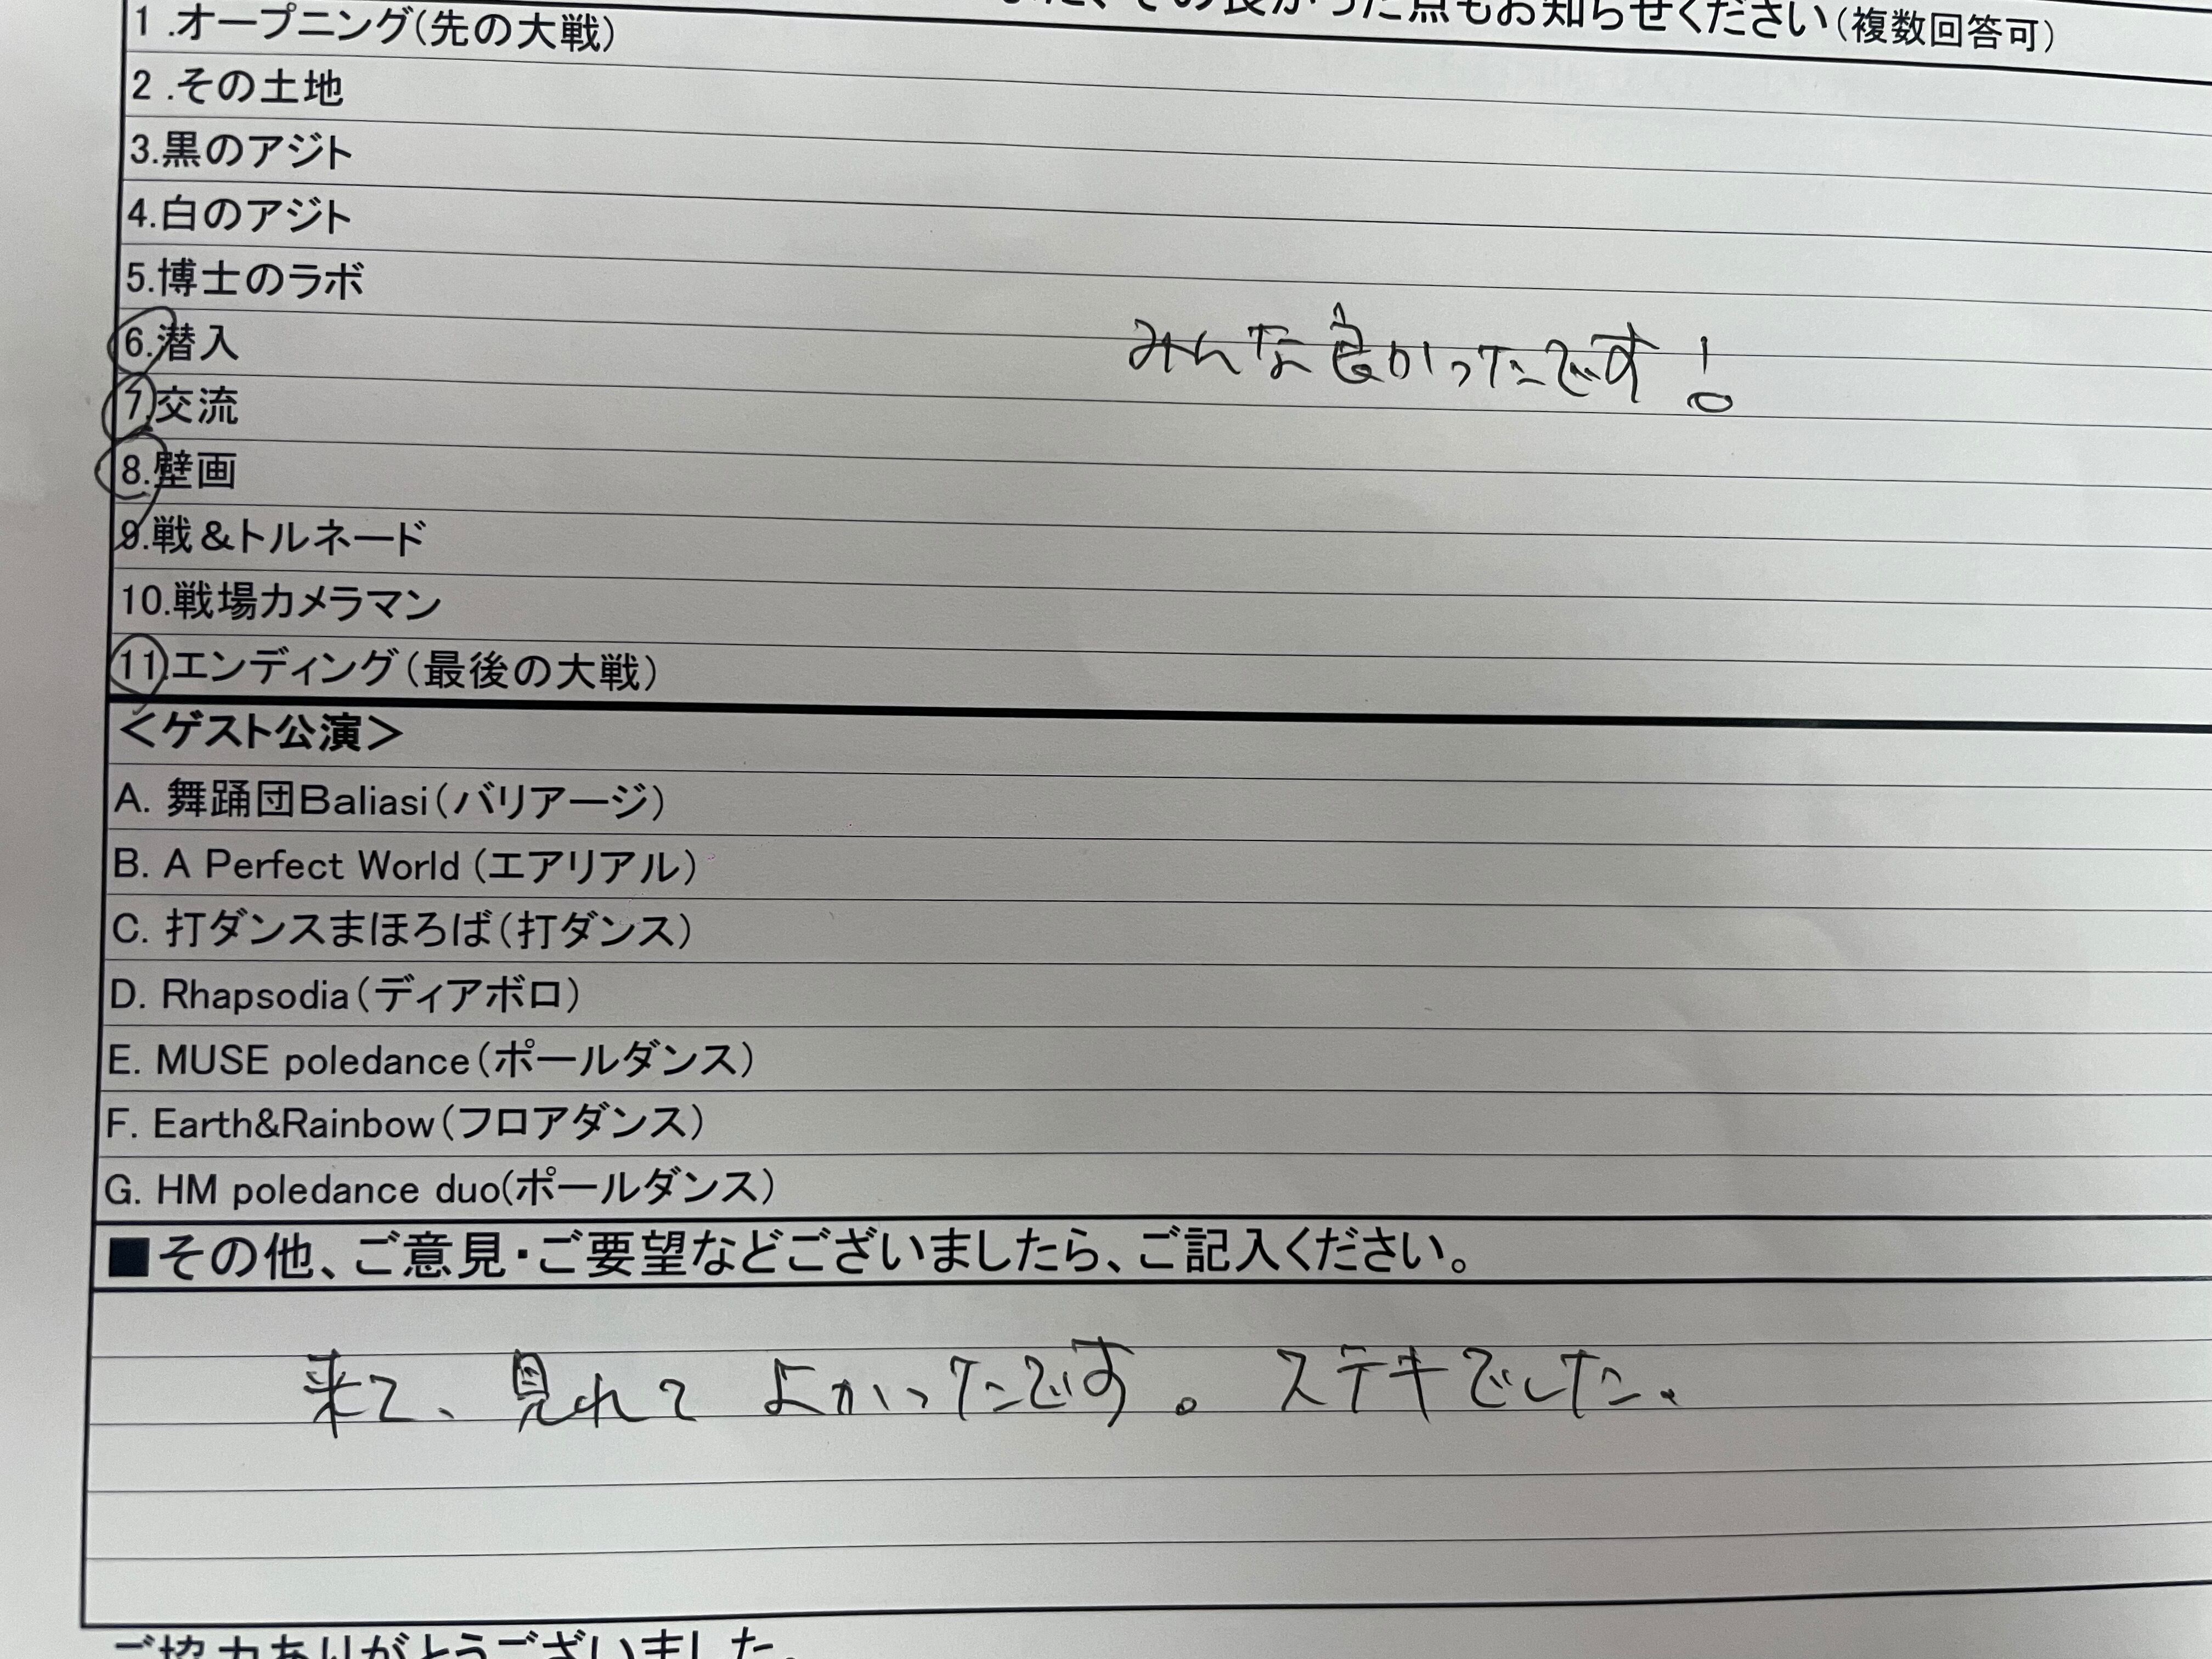 その良かった点もお知らせください(複数回答可)
1.オープニング(先の大戦)
2.その土地
3.黒のアジト
4.白のアジト
5.博士のラボ
6.潜入
みんな良かったです!
7.交流
8.壁画
9.戦&トルネード
10.戦場カメラマン
11.エンディング(最後の大戦)
<ゲスト公演>
A. 舞踊団Baliasi(バリアージ)
B. A Perfect World (エアリアル)
C. 打ダンスまほろば(打ダンス)
D. Rhapsodia(ディアボロ)
E. MUSE poledance(ポールダンス)
F. Earth&Rainbow(フロアダンス)
G. HM poledance duo(ポールダンス)
■その他、ご意見・ご要望などございましたら、ご記入ください。
来て、見れて よかったです。ステキでした。
ご協力ありがとうございました。